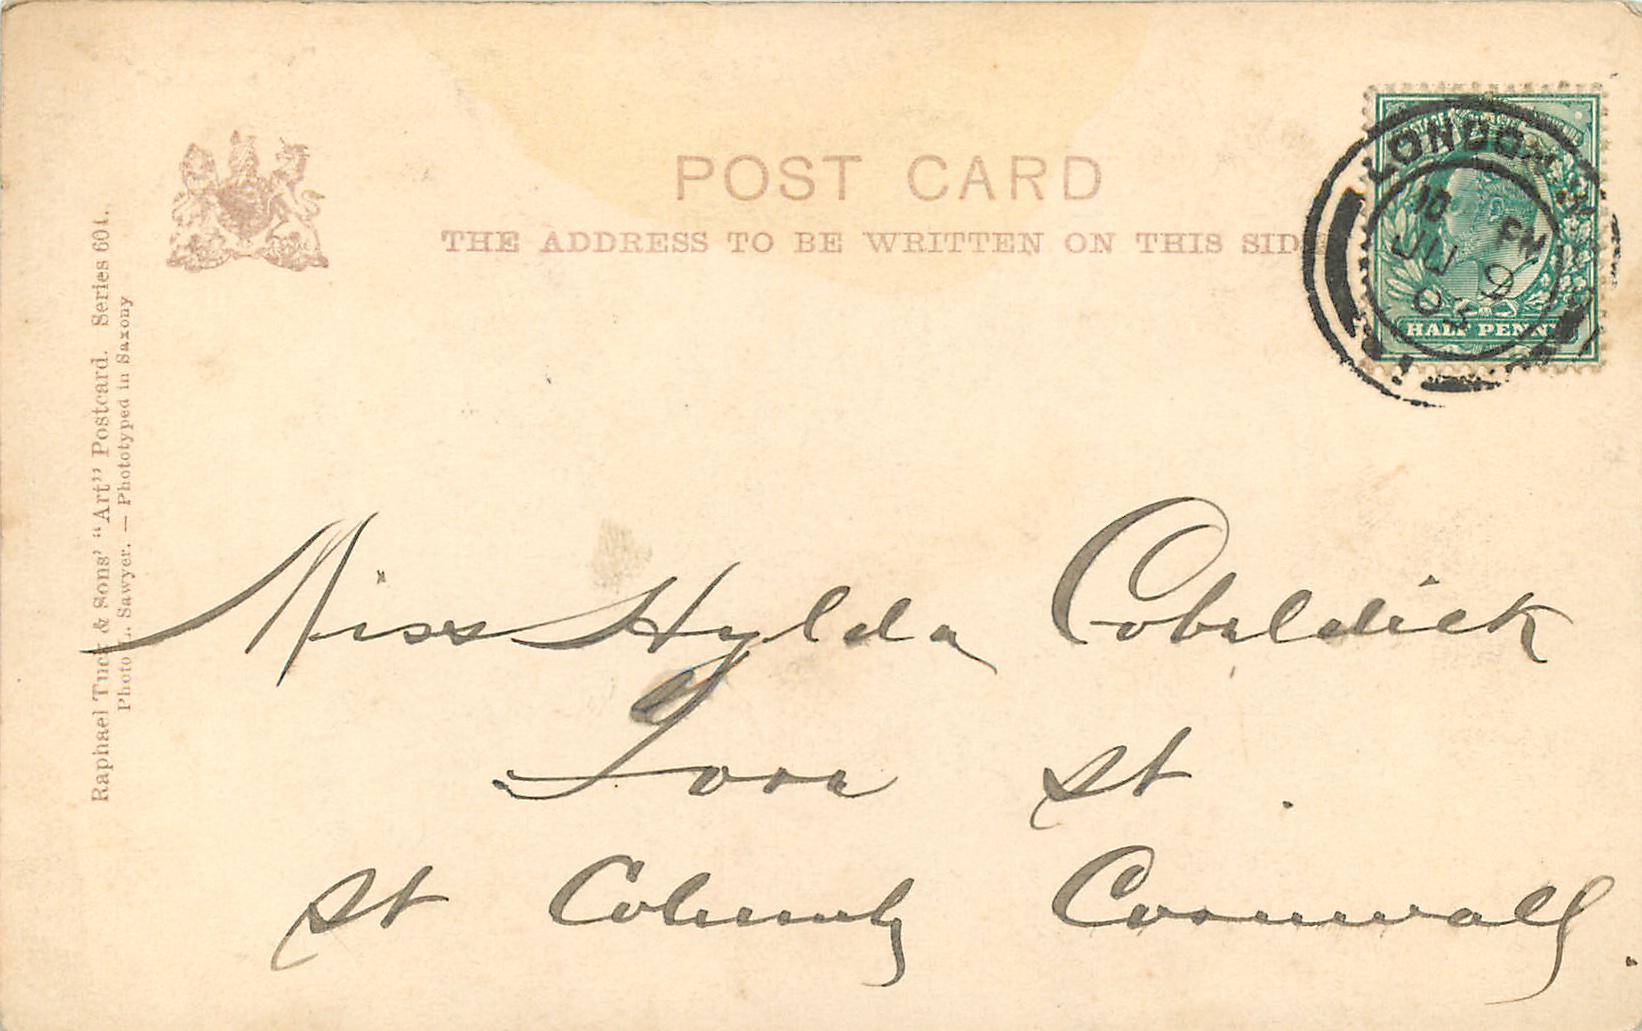 POST CARD
THE ADDRESS TO BE WRITTEN ON THIS SID
LONDON
10 PM
JU 9
03
HALF PENNY
Raphael Tuck & Sons' "Art" Postcard. Series 601.
Photo L. Sawyer. — Phototyped in Saxony
Miss Hylda Cobeldick
St.
St Columb Cornwall.